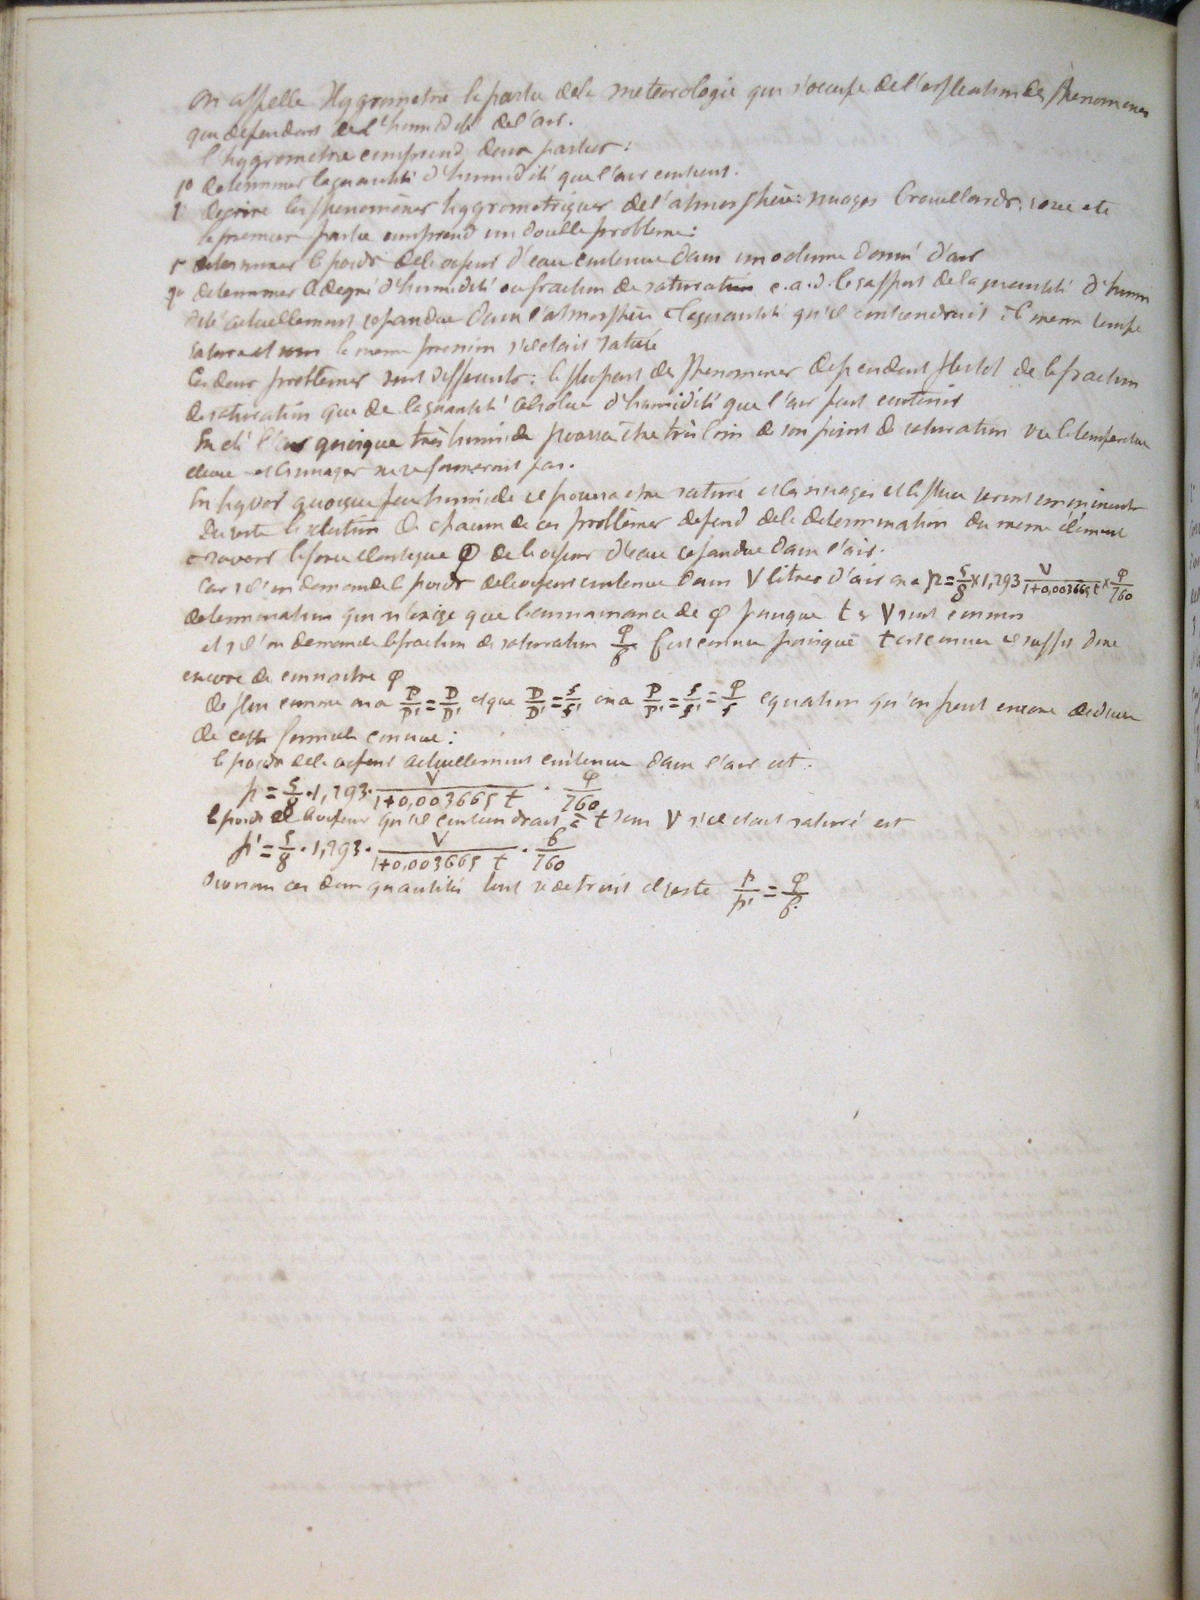 On appelle Hygrometrie la partie de la meteorologie qui s'occupe de l'explication des phenomenes
qui dependent de l'humidité de l'air.
l'hygrometrie comprend deux parties:
1o determiner la quantité d'humidité que l'air contient.
2o decrire les phenomènes hygrometriques de l'atmosphère: nuages brouillards, rosee etc
la premiere partie comprend un double probleme:
1o determiner le poids de la vapeur d'eau contenue dans un volume donné d'air
2o determiner le degré d'humidité ou fraction de saturation c.a.d. le rapport de la quantité d'humi
dité actuellement repandue dans l'atmosphère à la quantité qu'il contiendrait à la meme tempe
rature et sous la meme pression s'il etait saturé
Ces deux problemes sont differents: la plupart des phenomenes dependent plutot de la fraction
de saturation que de la quantité absolue d'humidité que l'air peut contenir
En été l'air quoique très humide pourra être très loin de son point de saturation vu la temperature
elevee et les nuages ne se formeront pas.
En hyver quoique peu humide il pourra etre saturé et les nuages et la pluie seront imminents
Du reste la solution de chacun de ces problèmes depend de la determination du meme élément
a savoir la force elastique φ de la vapeur d'eau repandue dans l'air.
Car si l'on demande le poids de la vapeur contenue dans V litres d'air on a p = 5/8 × 1,293 V/1+0,003665 t × φ/760
determination qui n'exige que la connaissance de φ puisque t et V sont connus
et si l'on demande la fraction de saturation φ/f f est connue puisque t est connue il suffit donc
encore de connaitre φ
De plus comme on a P/P' = D/D' et que D/D' = f/f' on a P/P' = f/f' = φ/f equation qu'on peut encore deduire
de cette formule connue:
le poids de la vapeur actuellement contenue dans l'air est:
p = 5/8 . 1,293 . V/1+0,003665 t . φ/760
le poids de la vapeur qu'il contiendrait à t sous V s'il etait saturé est
p' = 5/8 . 1,293 . V/1+0,003665 t . f/760
Divisons ces deux quantités tout se detruit et reste p/p' = φ/f